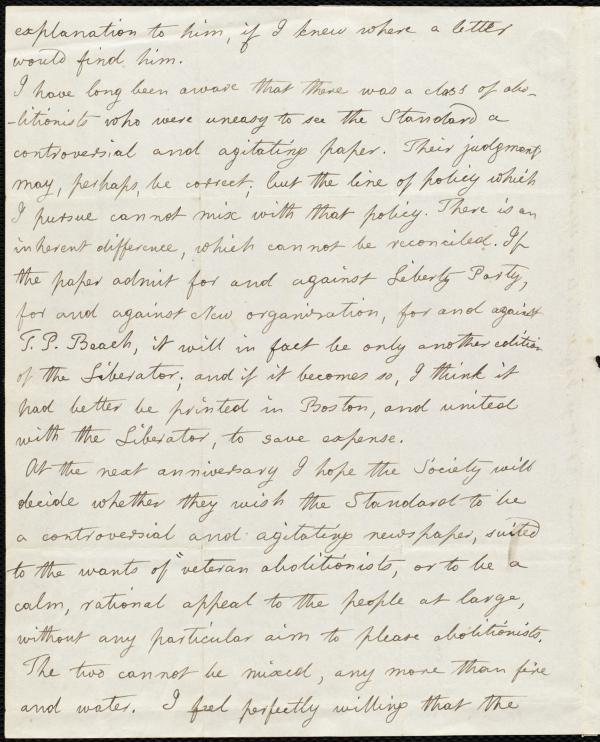 explanation to him, if I knew where a letter
would find him.
I have long been aware that there was a class of abo-
-litionists who were uneasy to see the Standard a
controversial and agitating paper. Their judgment
may, perhaps, be correct; but the line of policy which
I pursue cannot mix with that policy. There is an
inherent difference, which cannot be reconciled. If
the paper admit for and against Liberty Party,
for and against New organization, for and against
T. P. Beach, it will in fact be only another edition
of the Liberator; and if it becomes so, I think it
had better be printed in Boston, and united
with the Liberator, to save expense.
At the next anniversary I hope the Society will
decide whether they wish the Standard to be
a controversial and agitating newspaper, suited
to the wants of "veteran abolitionists, or to be a
calm, rational appeal to the people at large,
without any particular aim to please abolitionists.
The two cannot be mixed, any more than fire
and water. I feel perfectly willing that the